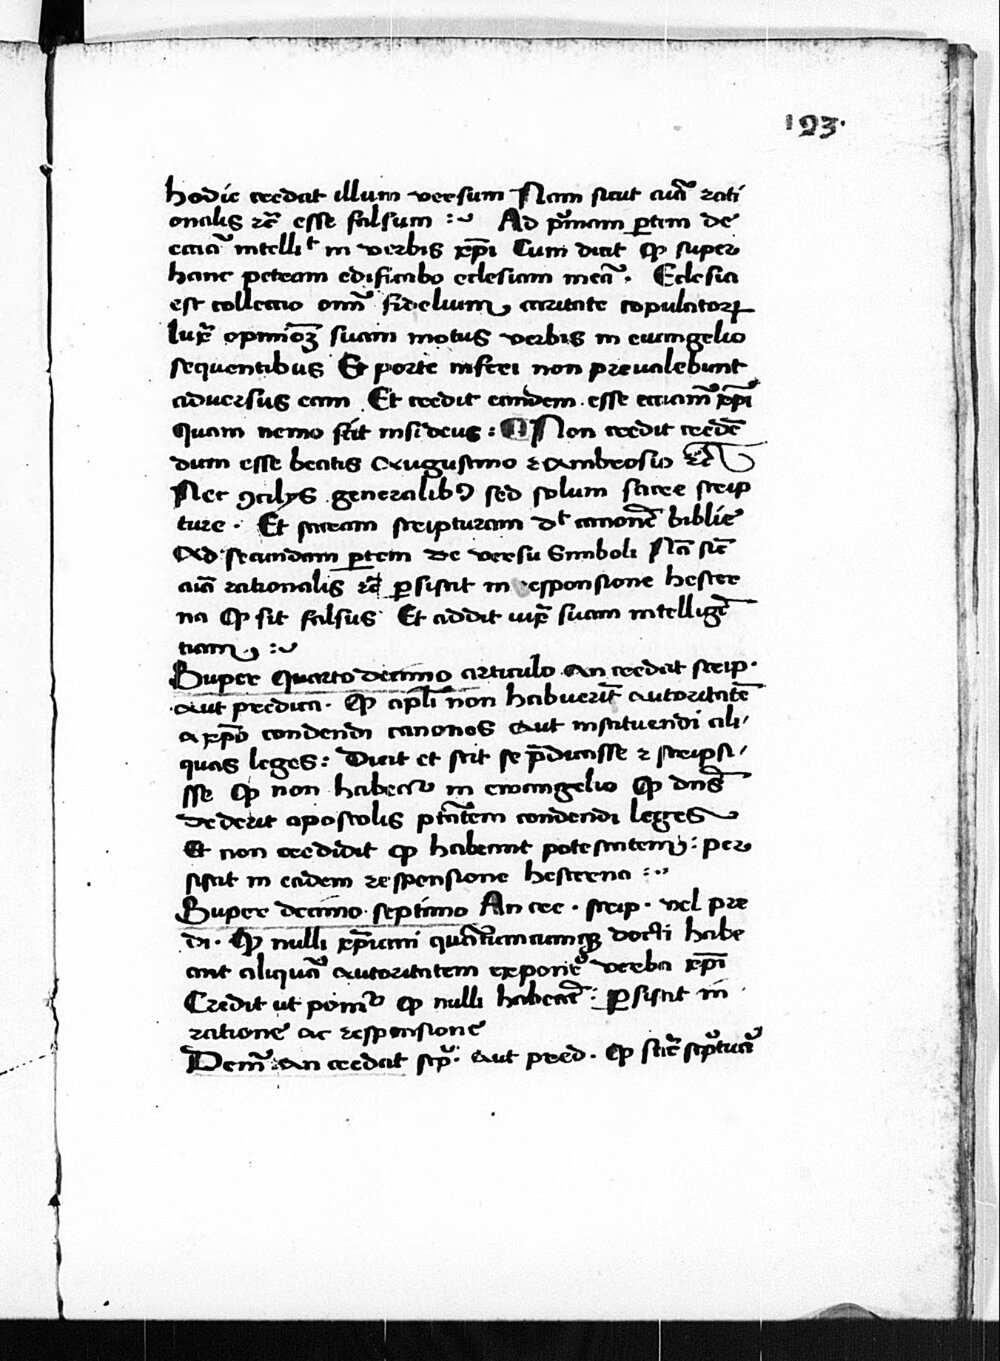 123.
hodie credat illum versum Nam sicut aĩa rati
onalis rc̃ esse falsum :~ Ad p̃mam ꝑtem de
eccia intelliᵗ in verbis xp̃i Cum dicit ꝙ super
hanc petram edificabo eclesiam meã. Eclesia
est collectio oĩm fidelium, caritate copulatoꝝ
Iux̃ opinioꝫ suam motus verbis in euangelio
sequentibus Et porte inferi non prevalebunt
adversus eam Et credit eandem esse ecciam xp̃i
Quam nemo scit nisi deus : Non credit creden̄
dum esse beatis Augustino ⁊ Ambrosio ⁊c̃
Nec ꝯcilys generalibꝰ sed solum sacre scrip
ture. Et sacram scripturam dᵗ canonē biblie
Ad secundam ꝑtem de versu Simboli Nā sic̄
aĩa rationalis rc̃ ꝑsistit in responsione hester
na ꝙ sit falsus Et addit iux̃ suam intelligē
tiam, :~
Super Quarto decimo articulo An credat scrip.
Aut predica. ꝙ apl̃i non habuerit̃ autoritatē
a xp̃o condendi canones Aut instituendi ali/
quas leges : Dicit et scit se p̄dicasse ⁊ scripsi/
sse ꝙ non habeat̃ in ewangelio ꝙ dn̄s
dederit apostolis ptātem condendi leges
Et non credidit ꝙ habeant potestatem, : per
sistit in eadem responsione hesterna :~
Super decimo septimo An cre. scrip. vel pre
di. ꝙ nulli xp̃iani quātumcumqꝫ docti habe
ant aliquã autoritatem exponē verba xp̃i
Credit ut ponitᵘ ꝙ nulli habeat̃ : ꝑsistit in
ratione ac responsione
Demū An credat scꝑ. Aut pred. ꝙ sac̄ scp̃turã